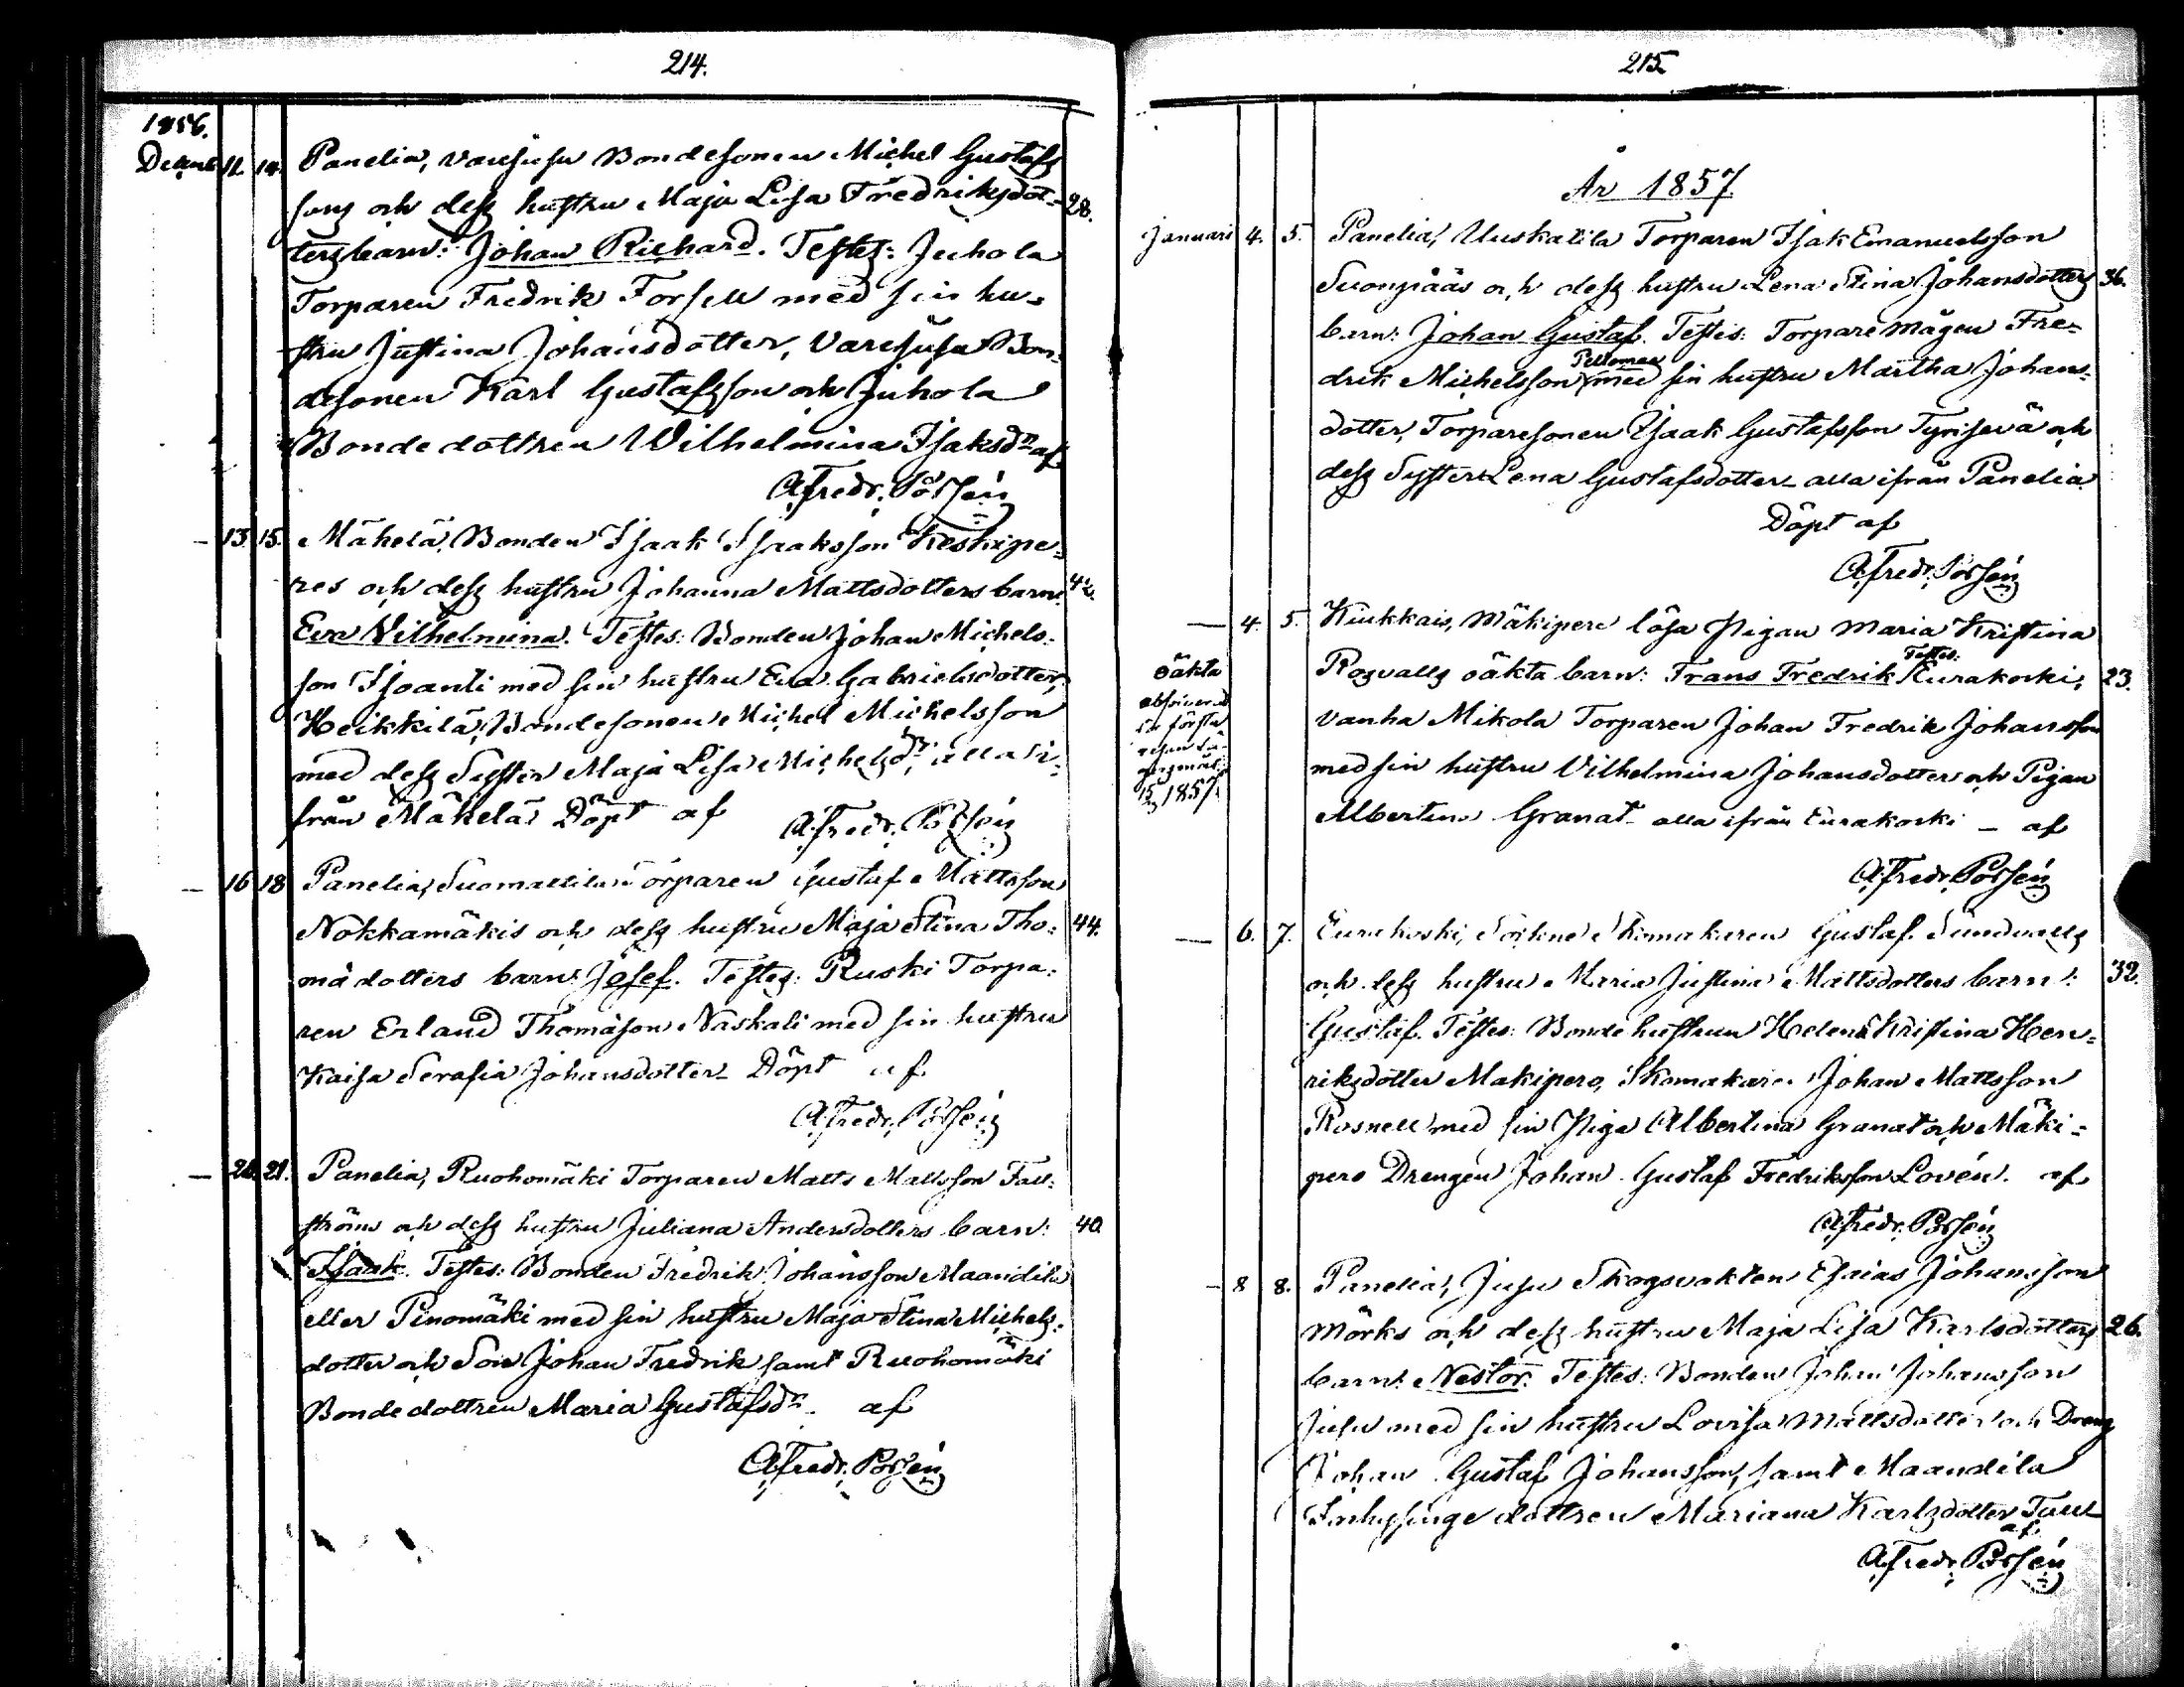 214.
1856.
Decemb 12. 14. Panelia, Varesusu Bondesonen Michel Gustafs
sons och dess hustru Maja Lisa Fredriksdot- 28.
ters barn: Johan Richard. Testes: Juhola
Torparen Fredrik Forsell med sin hu-
stru Justina Johansdotter, Varesusu Bon-
desonen Karl Gustafsson och Juhola
Bondedottren Wilhelmina Isaksdr af
A. Fredr. Possén
— 13. 15. Mähelä, Bonden Isaak Isaaksson Keskipe-
res och dess hustru Johanna Mattsdotters barn: 42.
Eva Vilhelmina. Testes: Bonden Johan Michels-
son Isoanti med sin hustru Eva Gabrielsdotter,
Heikkilä Bondesonen Michel Michelsson
med dess Syster Maja Lisa Michelsdr alla i-
från Mähelä. Döpt af A. Fredr. Possén
— 16 18 Panelia, Suomallila Torparen Gustaf Mattsson
Nokkamäkis och dess hustru Maja Stina Tho- 44.
mädotters barn: Josef. Testes: Ruski Torpa-
ren Erland Thomäson Naskali med sin hustru
Kaisa Serafia Johansdotter. Döpt af
A. Fredr. Possén
— 20. 21. Panelia, Ruohomäki Torparen Matts Mattsson Fall-
ströms och dess hustru Juliana Andersdotters barn: 40.
Isaak. Testes: Bonden Fredrik Johansson Maandila
eller Pinomäki med sin hustru Maja Stina Michels-
dotter och Son Johan Fredrik samt Ruohomäki
Bondedottren Maria Gustafsdr. af
A. Fredr. Possén
215
År 1857
Januari 4. 5. Panelia, Uuskalila Torparen Isak Emanuelsson
Suonpääs och dess hustru Lena Stina Johansdotters 36.
barn: Johan Gustaf. Testes: Torpare mågen Fre-
drik Michelsson Pellomaa med sin hustru Martha Johans-
dotter, Torparesonen Isaak Gustafsson Tyrisevä och
dess Syster Lena Gustafsdotter alla ifrån Panelia
Döpt af
A. Fredr. Possén
— 4. 5. Kiukkais, Mäkipere lösa Pigan Maria Kristina
oäkta Rosvalls oäkta barn: Frans Fredrik Testes: Eurakoski, 23.
för första
1857.
Vanha Mikola Torparen Johan Fredrik Johansson
med sin hustru Vilhelmina Johansdotter och Pigan
Albertina Granat alla ifrån Eurakoski — af
A. Fredr. Possén
— 6. 7. Eurakoski, Skomakaren Gustaf Sundvalls
och dess hustru Maria Justina Mattsdotters barn: 32.
Gustaf. Testes: Bondehustrun Helena Kristina Hen-
riksdotter Makipere, Skomakaren Johan Mattsson
Rosnell med sin Piga Albertina Granat och Mäki-
pere Drengen Johan Gustaf Fredriksson Lovén. af
A. Fredr. Possén
— 8 8. Panelia, Jusu Skogsvakten Esaias Johansson
Mörks och dess hustru Maja Lisa Karlsdotters 26.
barn: Nestor. Testes: Bonden Johan Johansson
Jusu med sin hustru Lovisa Mattsdotter och Dreng
Johan Gustaf Johansson, samt Maandila
Inhysinge dottren Mariana Karlsdotter Tall
af
A. Fredr. Possén